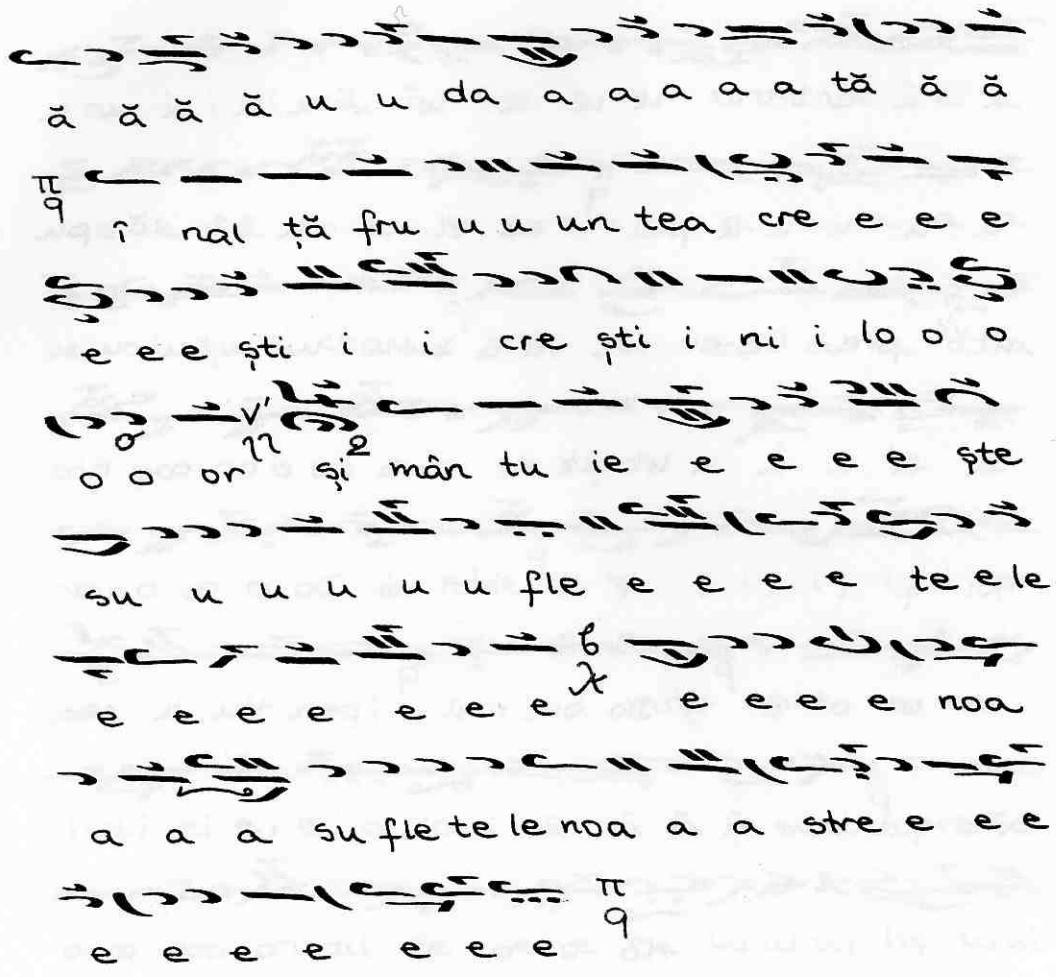 ă ă ă ă u u da a a a a a tă ă ă
π q
î nal ță fru u u un tea cre e e e
e e e ști i i cre ști i ni i lo o o
o o or și mân tu ie e e e e ște
su u u u u u fle e e e e te e le
e e e e e e e e e e e noa
a a a su fle te le noa a a stre e e e
e e e e e e e
π q